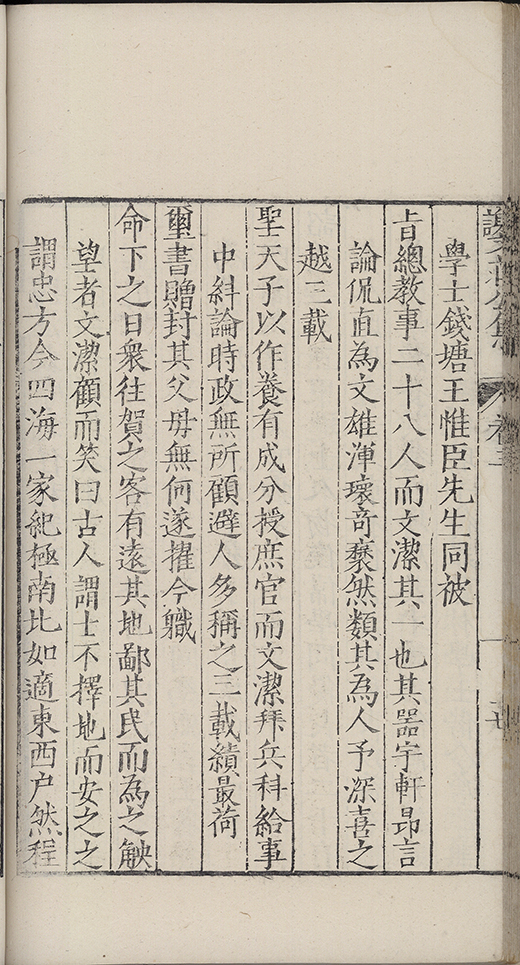 學士錢塘王惟臣先生同被
旨總教事二十八人而文潔其一也其器宇軒昻言
論侃直為文雄渾瓌竒褎然類其為人予深喜之
越三載
聖天子以作養有成分授庶官而文潔拜兵科給事
中糾論時政無所顧避人多稱之三載績最荷
璽書贈封其父母無何遂擢今職
命下之日衆往賀之客有遠其地鄙其民而為之觖
望者文潔顧而笑曰古人謂士不擇地而安之之
謂忠方今四海一家紀極南北如適東西户然程